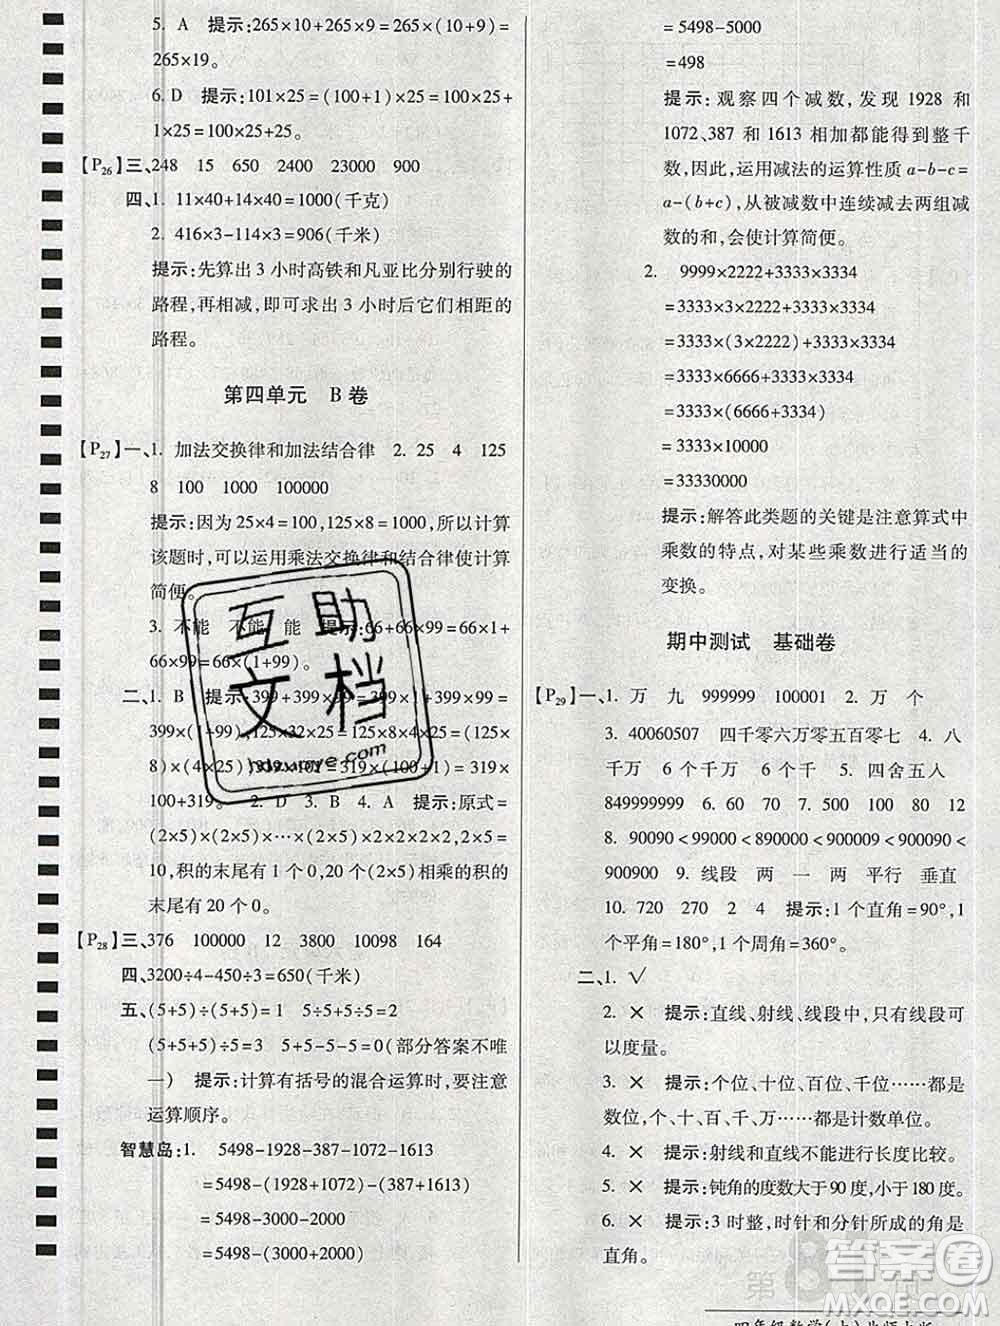 5. A 提示:265×10+265×9=265×(10+9)=
265×19。
6. D 提示:101×25=(100+1)×25=100×25+
1×25=100×25+25。
【P26】三、248 15 650 2400 23000 900
四、1. 11×40+14×40=1000(千克)
2. 416×3-114×3=906(千米)
提示:先算出 3 小时高铁和凡亚比分别行驶的
路程,再相减,即可求出 3 小时后它们相距的
路程。
第四单元 B 卷
【P27】一、1. 加法交换律和加法结合律 2. 25 4 125
8 100 1000 100000
提示:因为25×4=100,125×8=1000,所以计算
该题时,可以运用乘法交换律和结合律使计算
简便。
3. 不能 不能 能 提示:66+66×99=66×1+
66×99=66×(1+99)。
二、1. B 提示:399+399×99=399×1+399×99=
399×(1+99),125×32×25=125×8×4×25=(125×
8)×(4×25),319×102=319×(100+1)=319×
100+319。 2. D 3. B 4. A 提示:原式=
(2×5)×(2×5)×⋯×(2×5)×2×2×2×2,2×5=
10,积的末尾有 1 个 0,20 个(2×5)相乘的积的
末尾有 20 个 0。
【P28】三、376 100000 12 3800 10098 164
四、3200÷4-450÷3=650(千米)
五、(5+5)÷(5+5)=1 5÷5+5÷5=2
(5+5+5)÷5=3 5+5-5-5=0(部分答案不唯
一) 提示:计算有括号的混合运算时,要注意
运算顺序。
智慧岛:1. 5498-1928-387-1072-1613
=5498-(1928+1072)-(387+1613)
=5498-3000-2000
=5498-(3000+2000)
=5498-5000
=498
提示:观察四个减数,发现 1928 和
1072、387 和 1613 相加都能得到整千
数,因此,运用减法的运算性质 a-b-c=
a-(b+c),从被减数中连续减去两组减
数的和,会使计算简便。
2. 9999×2222+3333×3334
=3333×3×2222+3333×3334
=3333×(3×2222)+3333×3334
=3333×6666+3333×3334
=3333×(6666+3334)
=3333×10000
=33330000
提示:解答此类题的关键是注意算式中
乘数的特点,对某些乘数进行适当的
变换。
期中测试 基础卷
【P29】一、1. 万 九 999999 100001 2. 万 个
3. 40060507 四千零六万零五百零七 4. 八
千万 6个千万 6个千 5. 四舍五入
849999999 6. 60 70 7. 500 100 80 12
8. 90090<99000<890000<900009<900090<
900900 9. 线段 两 一 两 平行 垂直
10. 720 270 2 4 提示:1 个直角=90°,1
个平角=180°,1 个周角=360°。
二、1. √
2. × 提示:直线、射线、线段中,只有线段可
以度量。
3. × 提示:个位、十位、百位、千位……都是
数位,个、十、百、千、万……都是计数单位。
4. × 提示:射线和直线不能进行长度比较。
5. × 提示:钝角的度数大于 90 度,小于 180 度。
6. × 提示:3 时整,时针和分针所成的角是
直角。
互助
文档
hdzuoye.com
答案圈
MXQE.COM
四年级数学(上)北师大版